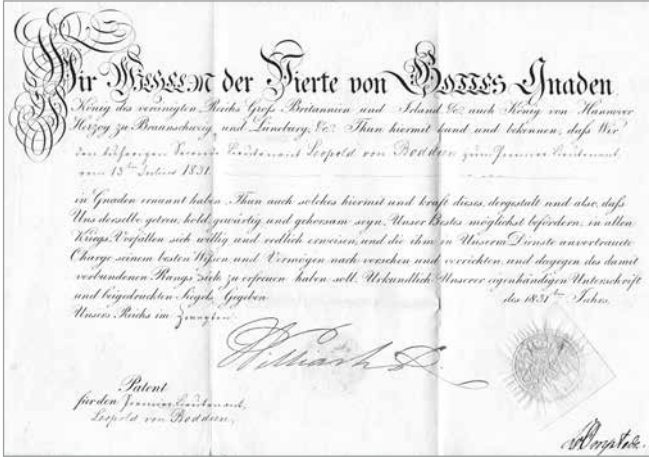 Wir WILHELM der Vierte von GOTTES Gnaden
König des vereinigten Reichs Gross-Britannien und Irland &c auch König von Hannover
Herzog zu Braunschweig und Lüneburg, &c. Thun hiermit kund und bekennen, daß Wir
den bisherigen Seconde Lieutenant Leopold von Boddien zum Premier Lieutenant
vom 13ten Julius 1831.
in Gnaden ernannt haben. Thun auch solches hiermit und kraft dieses, dergestalt und also, daß
Uns derselbe getreu, hold, gewärtig und gehorsam seyn, Unser Bestes möglichst befördern, in allen
Kriegs-Vorfällen sich willig und redlich erweisen, und die ihm in Unserm Dienste anvertraute
Charge seinem besten Wissen und Vermögen nach versehen und verrichten, und dagegen des damit
verbundenen Rangs sich zu erfreuen haben soll. Urkundlich Unserer eigenhändigen Unterschrift
und beigedruckten Siegels, Gegeben des 1831ten Jahrs,
Unsers Reichs im Zweyten.
William R.
Patent
für den Premier Lieutenant
Leopold von Boddien.